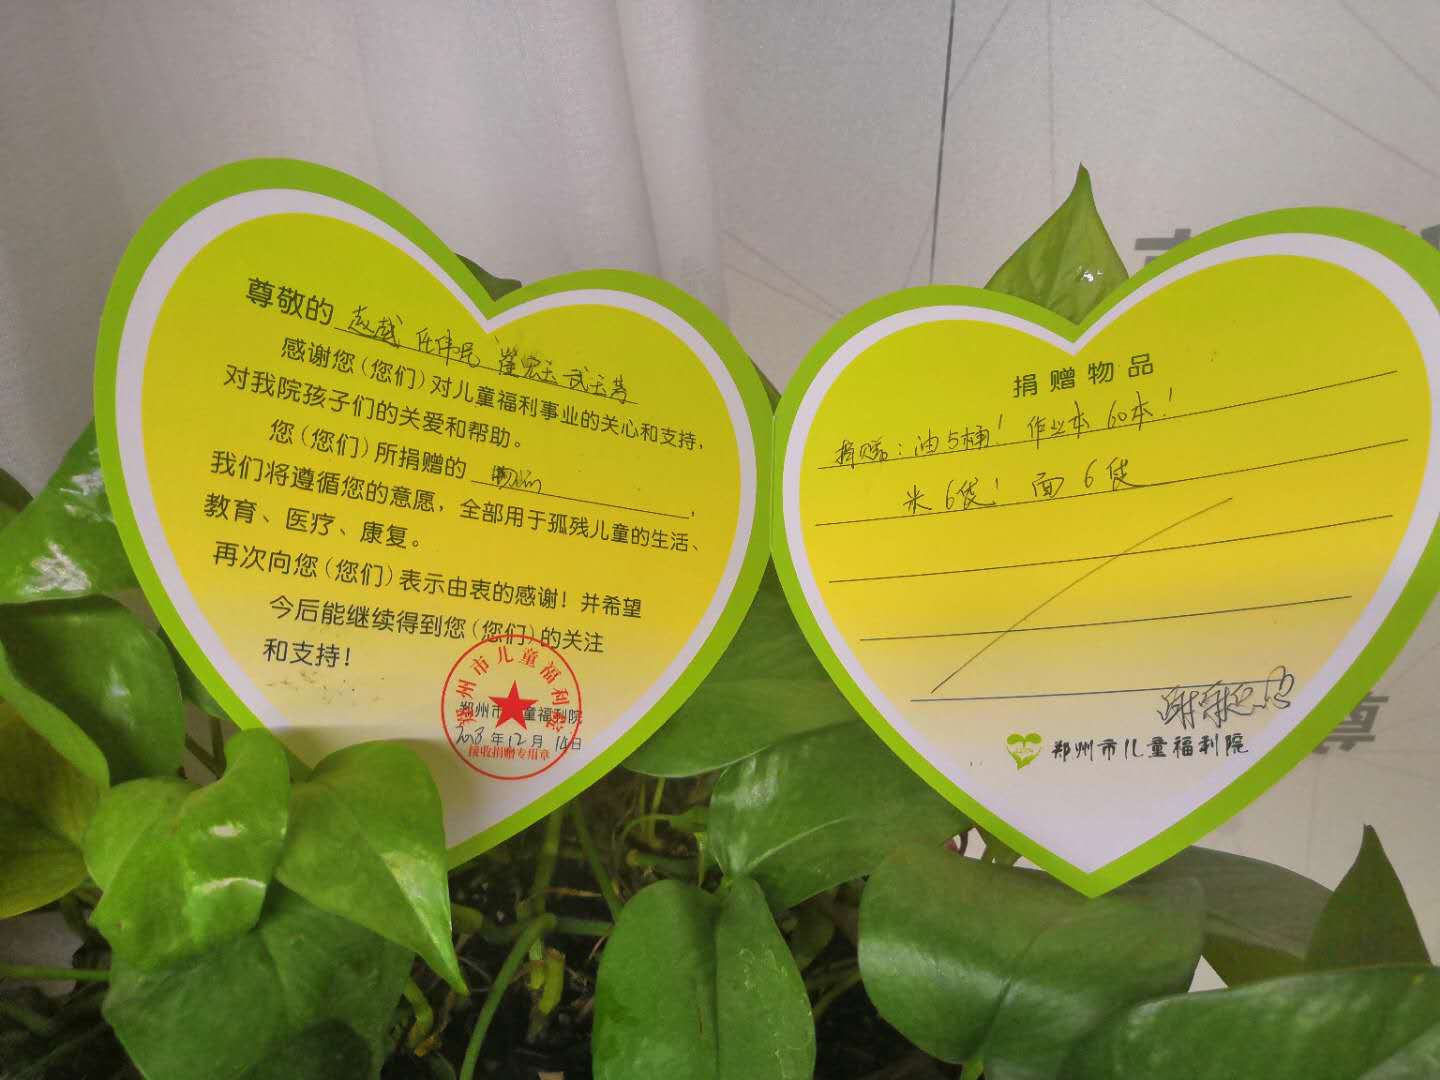 尊敬的 赵越 任伟民 崔宏玉 武玉芳
感谢您(您们)对儿童福利事业的关心和支持，
对我院孩子们的关爱和帮助。
您(您们)所捐赠的 物品，
我们将遵循您的意愿，全部用于孤残儿童的生活、
教育、医疗、康复。
再次向您(您们)表示由衷的感谢！并希望
今后能继续得到您(您们)的关注
和支持！
郑州市儿童福利院
郑州市儿童福利院
年12月14日
接收捐赠专用章
捐赠物品
捐赠：油5桶！作业本60本！
米6袋！面6袋
郑州市儿童福利院